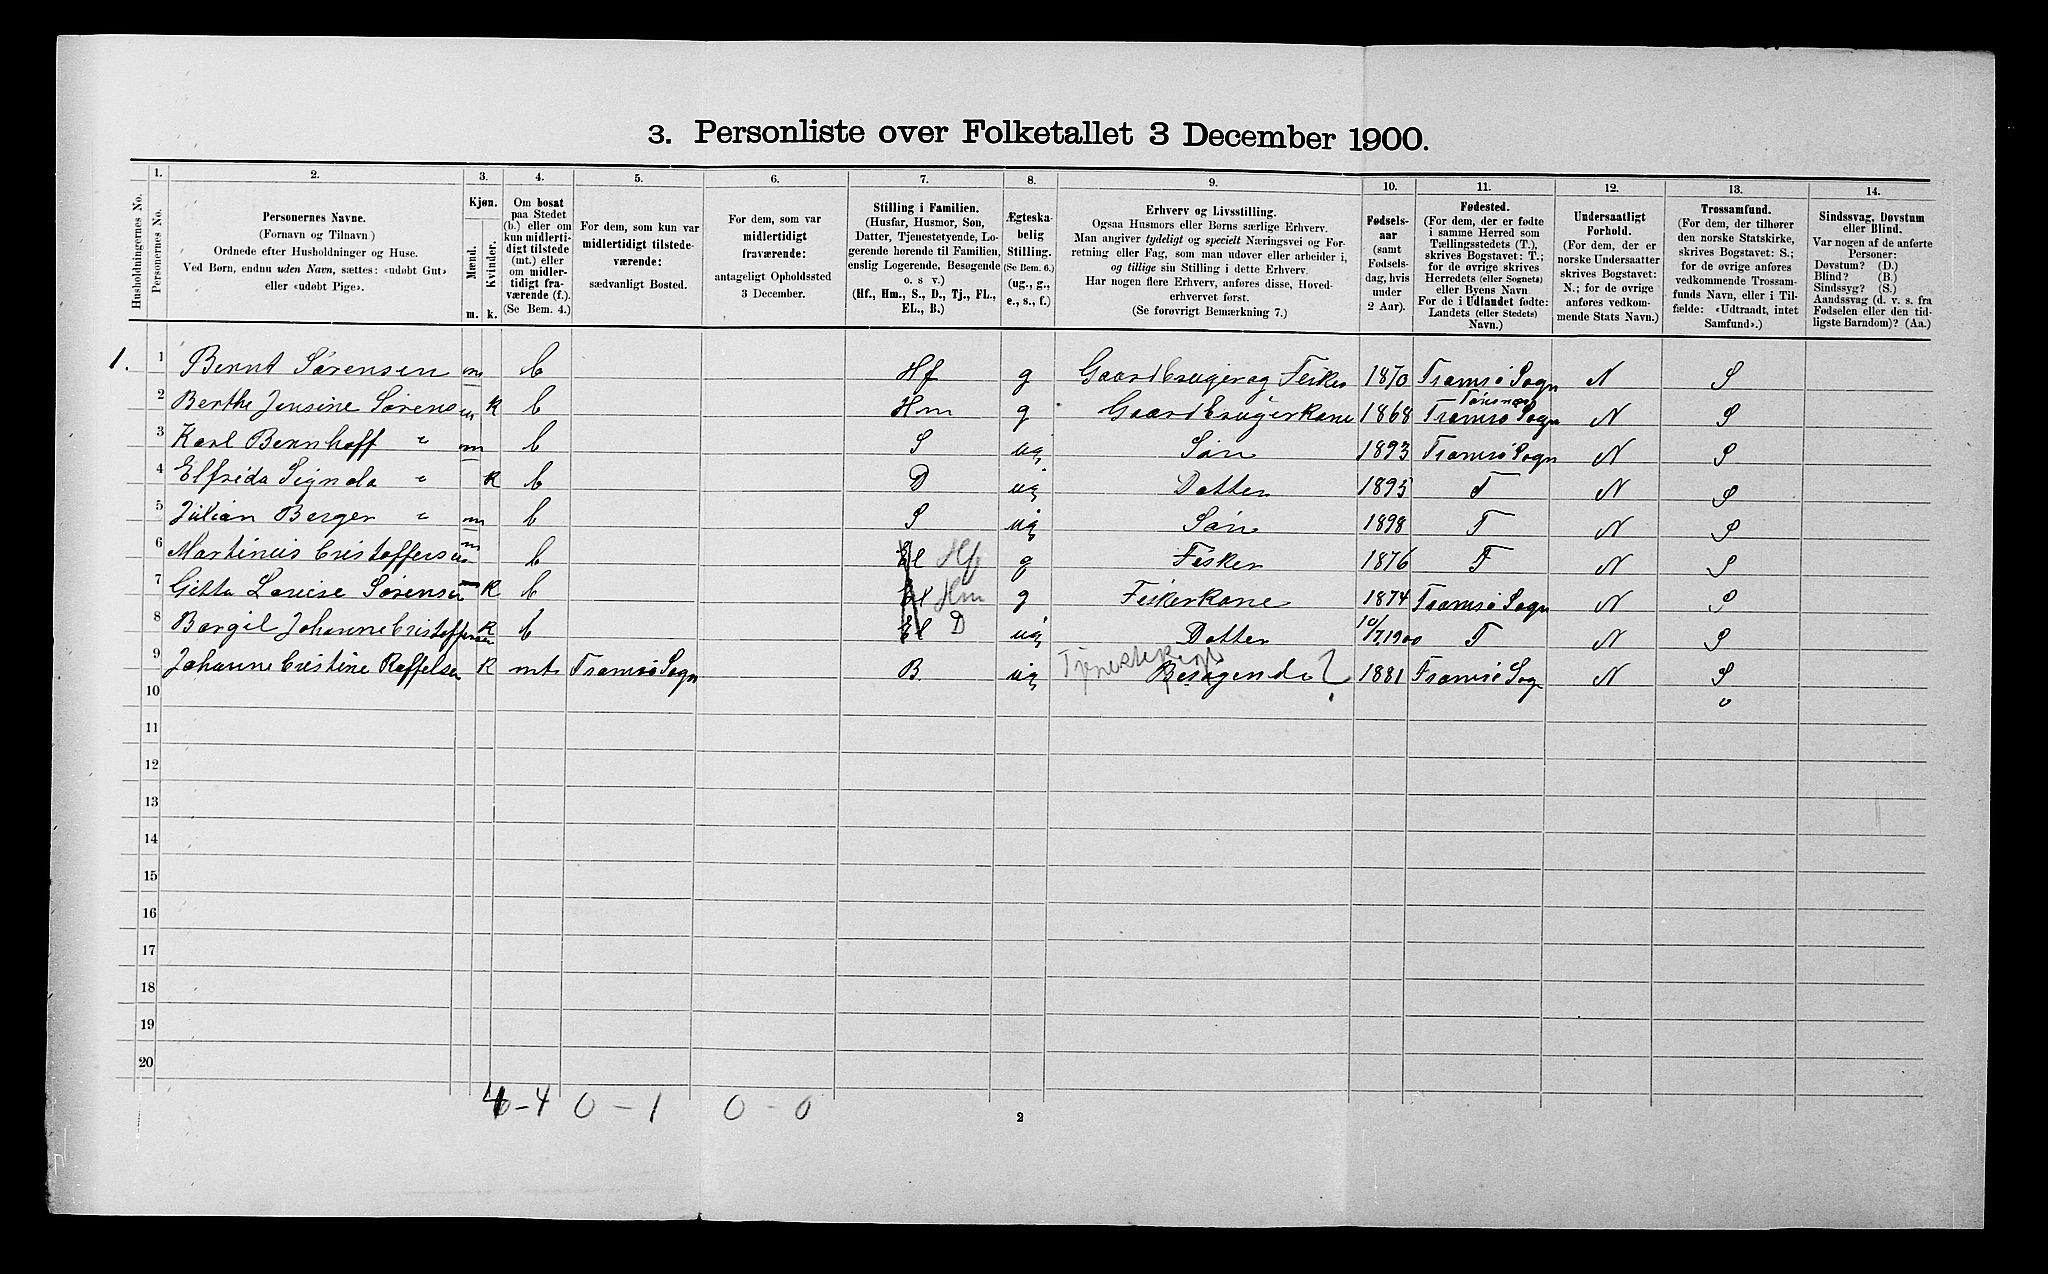 3. Personliste over Folketallet 3 December 1900.
1. 2. 3. 4. 5. 6. 7. 8. 9. 10. 11. 12. 13. 14.
Husholdningernes No.
Personernes No.
Personernes Navne.
(Fornavn og Tilnavn)
Ordnede efter Husholdninger og Huse.
Ved Børn, endnu uden Navn, sættes: «udøbt Gut»
eller «udøbt Pige».
Kjøn.
Mænd.
Kvinder.
m. k.
Om bosat
paa Stedet
(b.) eller om
kun midlerti-
digt tilstede
(mt.) eller
om midler-
tidigt fra-
værende (f.).
(Se Bem. 4.)
For dem, som kun var
midlertidigt tilstede-
værende:
sædvanligt Bosted.
For dem, som var
midlertidigt
fraværende:
antageligt Opholdssted
3 December.
Stilling i Familien.
(Husfar, Husmor, Søn,
Datter, Tjenestetyende, Lo-
gerende hørende til Familien,
enslig Logerende, Besøgende
o. s v.)
(Hf., Hm., S., D., Tj., FL.,
EL., B.)
Ægteska-
belig
Stilling.
(Se Bem. 6.)
(ug., g.,
e., s., f.)
Erhverv og Livsstilling.
Ogsaa Husmors eller Børns særlige Erhverv.
Man angiver tydeligt og specielt Næringsvei og For-
retning eller Fag, som man udøver eller arbeider i,
og tillige sin Stilling i dette Erhverv.
Har nogen flere Erhverv, anføres disse, Hoved-
erhvervet først.
(Se forøvrigt Bemærkning 7.)
Fødsels-
aar
(samt
Fødsels-
dag, hvis
under
2 Aar).
Fødested.
(For dem, der er fødte
i samme Herred som
Tællingsstedets (T.),
skrives Bogstavet: T.;
for de øvrige skrives
Herredets (eller Sognets)
eller Byens Navn
For de i Udlandet fødte:
Landets (eller Stedets)
Navn.)
Undersaatligt
Forhold.
(For dem, der er
norske Undersaatter
skrives Bogstavet:
N.; for de øvrige
anføres vedkom-
mende Stats Navn.)
Trossamfund.
(For dem, der tilhører
den norske Statskirke,
skrives Bogstavet: S.;
for de øvrige anføres
vedkommende Trossam-
funds Navn, eller i Til-
fælde: «Udtraadt, intet
Samfund».)
Sindssvag, Døvstum
eller Blind.
Var nogen af de anførte
Personer:
Døvstum? (D.)
Blind? (B.)
Sindssyg? (S.)
Aandssvag (d. v. s. fra
Fødselen eller den tid-
ligste Barndom)? (Aa.)
1. 1 Bernt Sørensen m b Hf g Gaardbruger og Fisker 1870 Tromsø Sogn N S
2 Berthe Jensine Sørensen k b Hm g Gaardbrugerkone 1868 Tromsø Sogn N S
3 Karl Bernhoff " m b S ug. Søn 1893 Tromsø Sogn N S
4 Elfrida Signda " k b D ug Datter 1895 T N S
5 Julian Berger " m b S ug Søn 1898 T N S
6 Martinus Cristoffersen m b El Hf g Fisker 1876 T N S
7 Gitta Lovise Sørensen k b El Hm g Fiskerkone 1874 Tromsø Sogn N S
8 Bergit Johanne Cristoffersen k b El D ug Datter 10/7.1900 T N S
9 Johanne Cristine Roffelsen k mt Tromsø Sogn B ug Tjenestepige Besøgende? 1881 Tromsø Sog N S
10
11
12
13
14
15
16
17
18
19
20
4-4 0-1 0-0
2